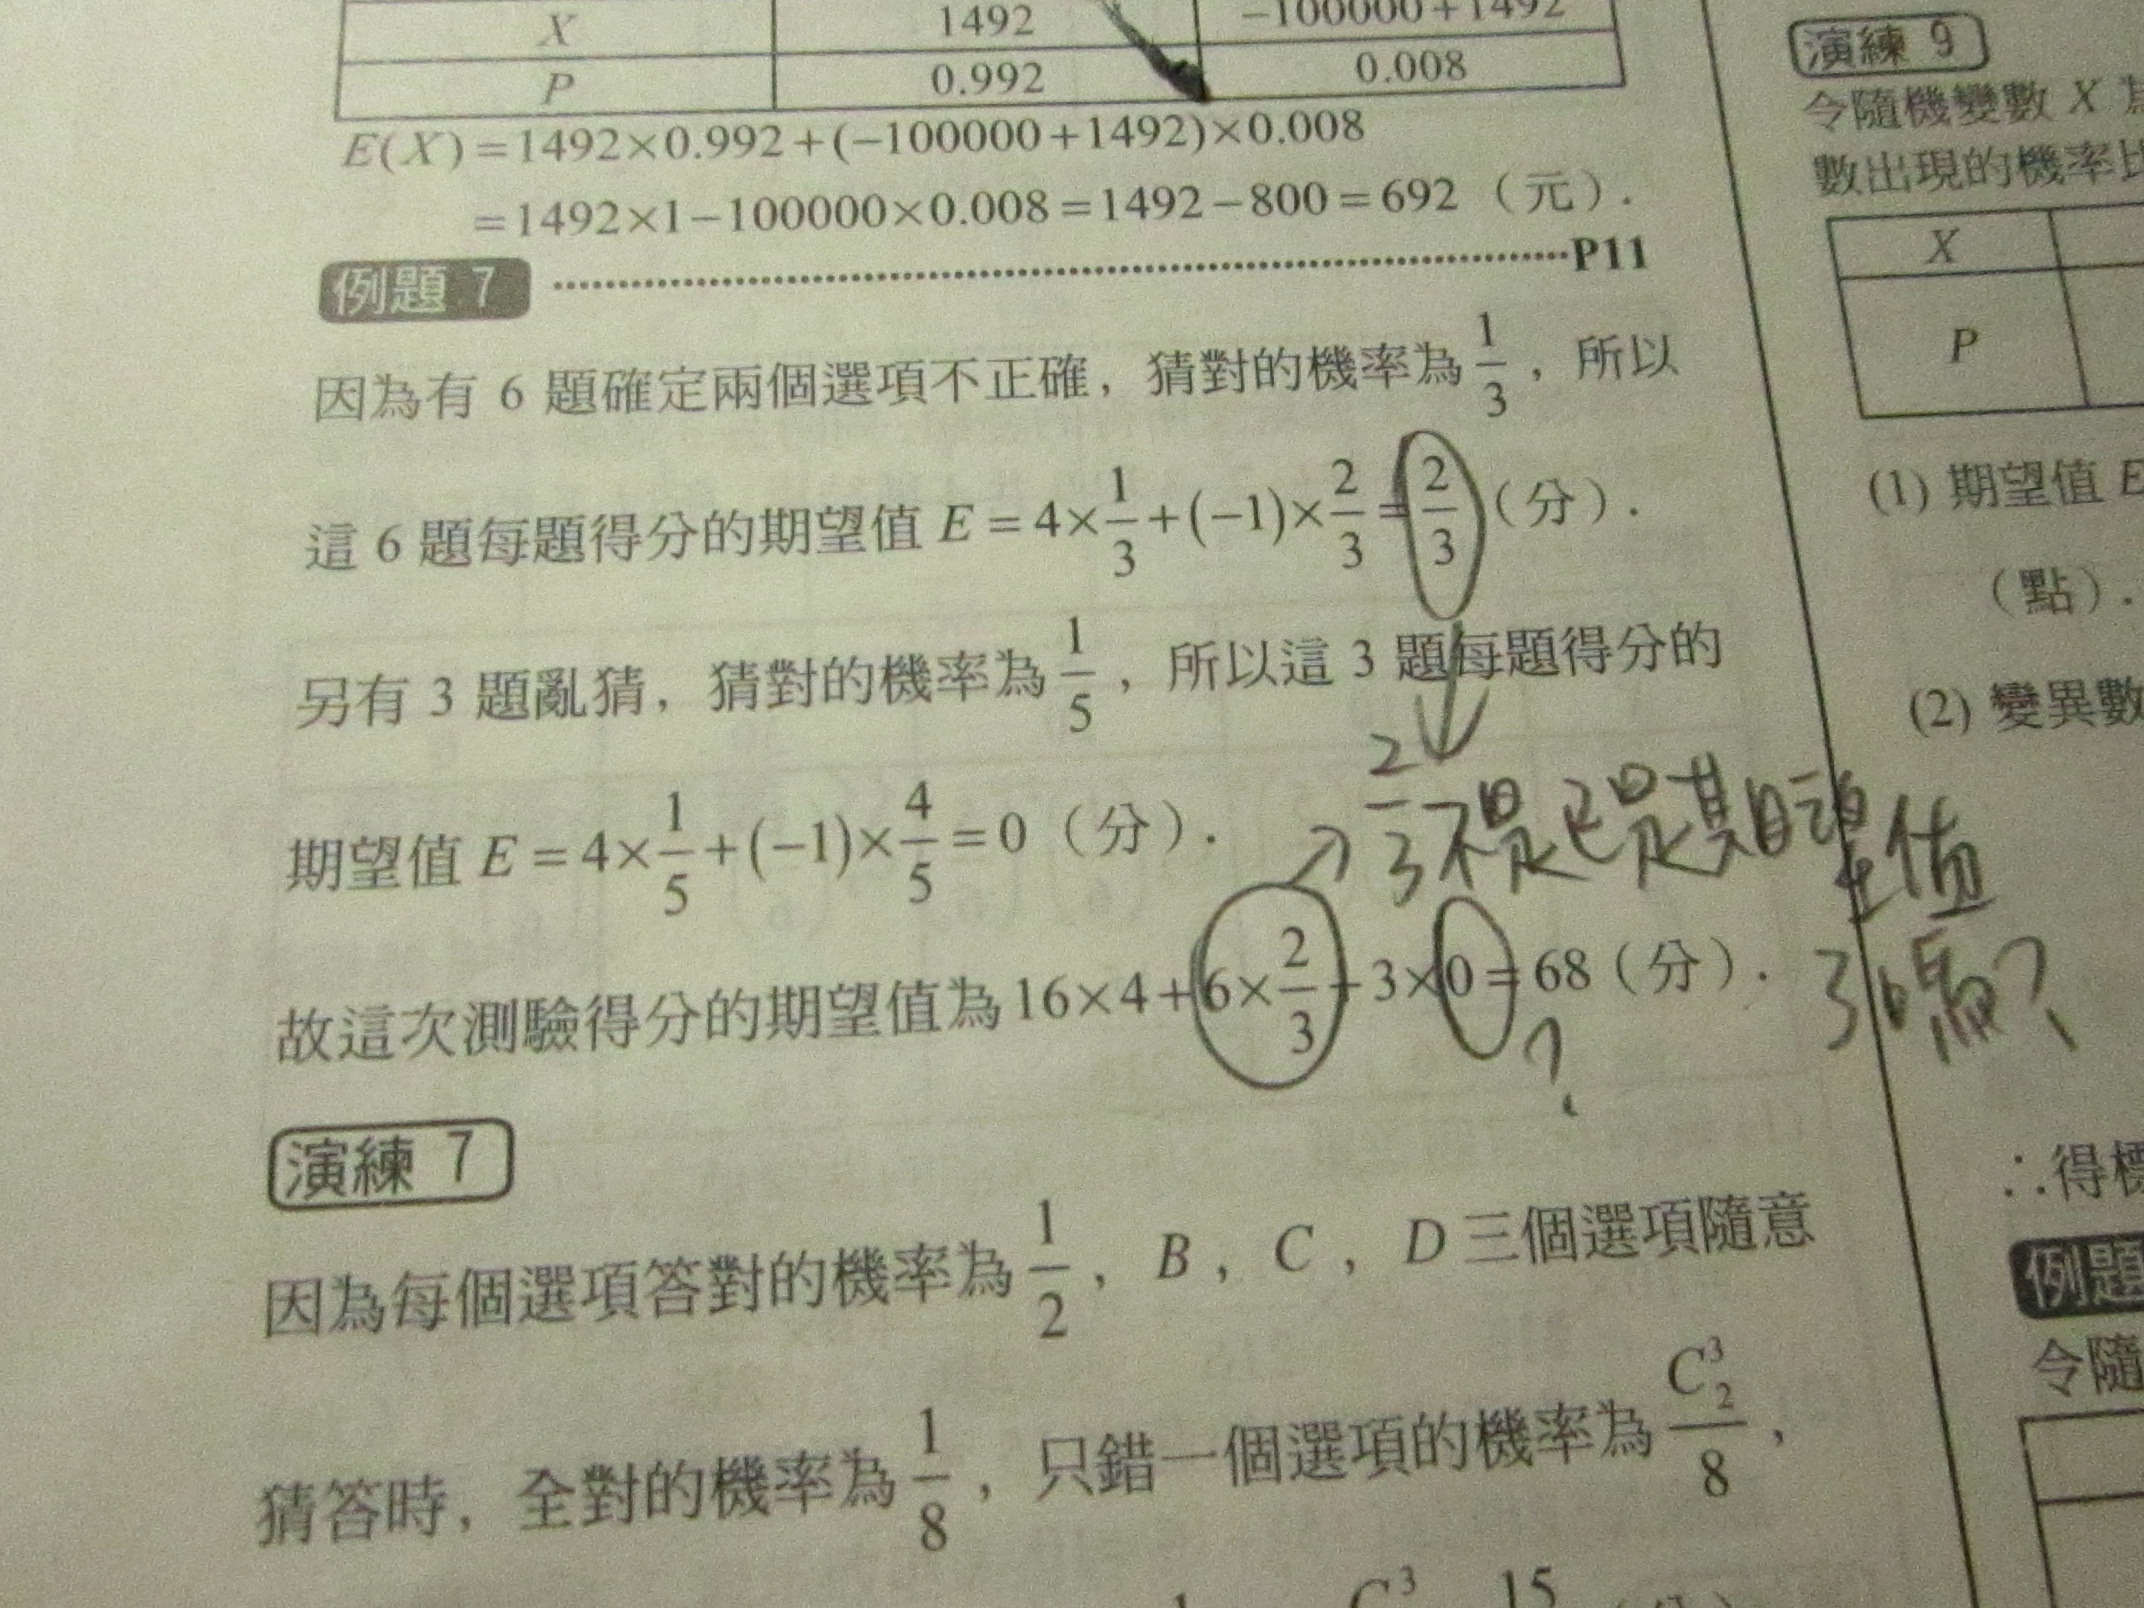 X 1492 −100000+1492
P 0.992 0.008
E(X)=1492×0.992+(−100000+1492)×0.008
=1492×1−100000×0.008=1492−800=692（元）.
例題 7 ……………………………………P11
因為有 6 題確定兩個選項不正確，猜對的機率為 1/3，所以
這 6 題每題得分的期望值 E=4×1/3+(−1)×2/3=2/3（分）.
另有 3 題亂猜，猜對的機率為 1/5，所以這 3 題每題得分的
期望值 E=4×1/5+(−1)×4/5=0（分）.
2/3不是已是期望值
了嗎?
故這次測驗得分的期望值為 16×4+6×2/3+3×0=68（分）.
?
演練 7
因為每個選項答對的機率為 1/2，B，C，D 三個選項隨意
猜答時，全對的機率為 1/8，只錯一個選項的機率為 C³₂/8，
1 C³ 15
演練 9
令隨機變數 X 為
數出現的機率比
X
P
(1) 期望值 E
（點）.
(2) 變異數
∴得標
例題
令隨